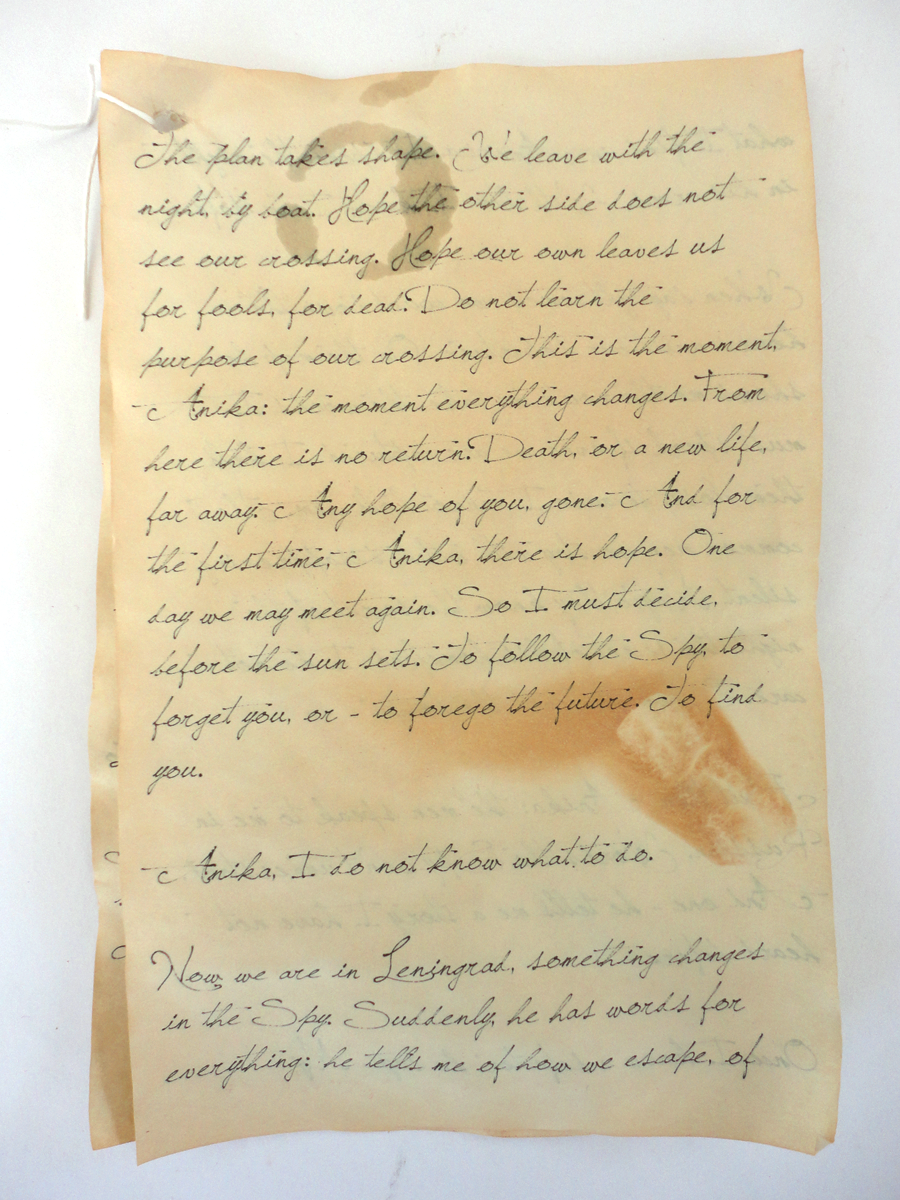 The plan takes shape. We leave with the
night, by boat. Hope the other side does not
see our crossing. Hope our own leaves us
for fools, for dead. Do not learn the
purpose of our crossing. This is the moment,
Anika: the moment everything changes. From
here there is no return. Death, or a new life,
far away. Any hope of you, gone. And for
the first time, Anika, there is hope. One
day we may meet again. So I must decide,
before the sun sets. To follow the Spy, to
forget you, or - to forego the future. To find
you.
Anika, I do not know what to do.
Now we are in Leningrad, something changes
in the Spy. Suddenly, he has words for
everything: he tells me of how we escape, of